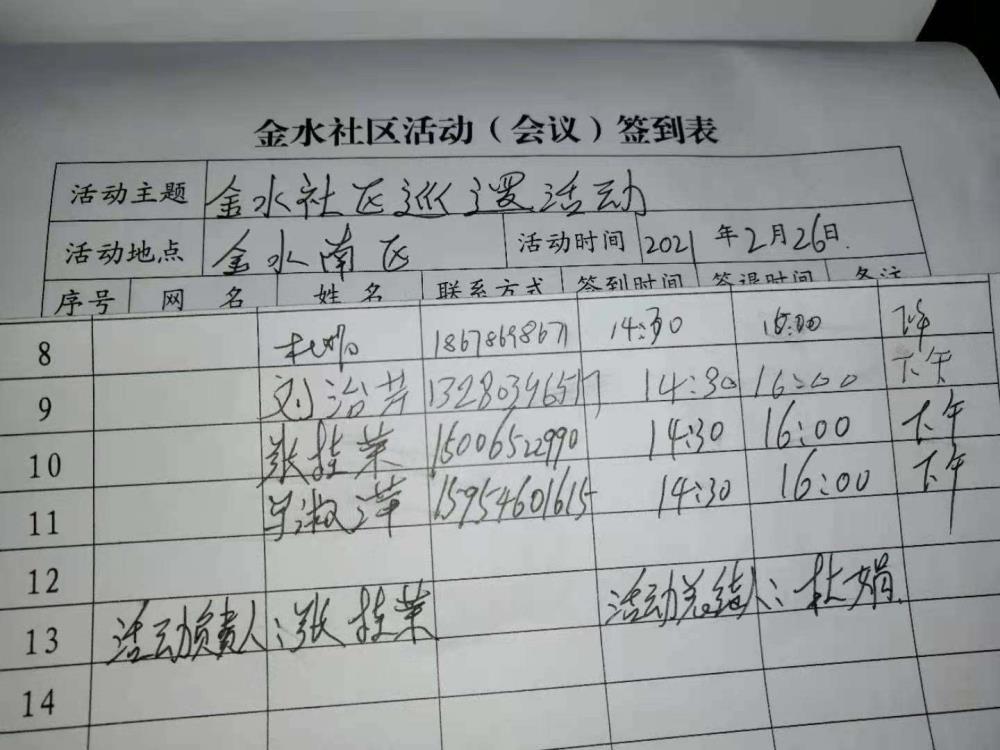 金水社区活动（会议）签到表
活动主题 金水社区巡逻活动
活动地点 金水南区 活动时间 2021年2月26日.
序号 网名 姓名 联系方式 签到时间 签退时间 备注
8 杜娟 18678698671 14:30 16:00 下午
9 刘治芳 13280346517 14:30 16:00 下午
10 张桂荣 15006522990 14:30 16:00 下午
11 淑萍 15954601615 14:30 16:00 下午
12
13 活动负责人：张桂荣 活动总结人：杜娟
14